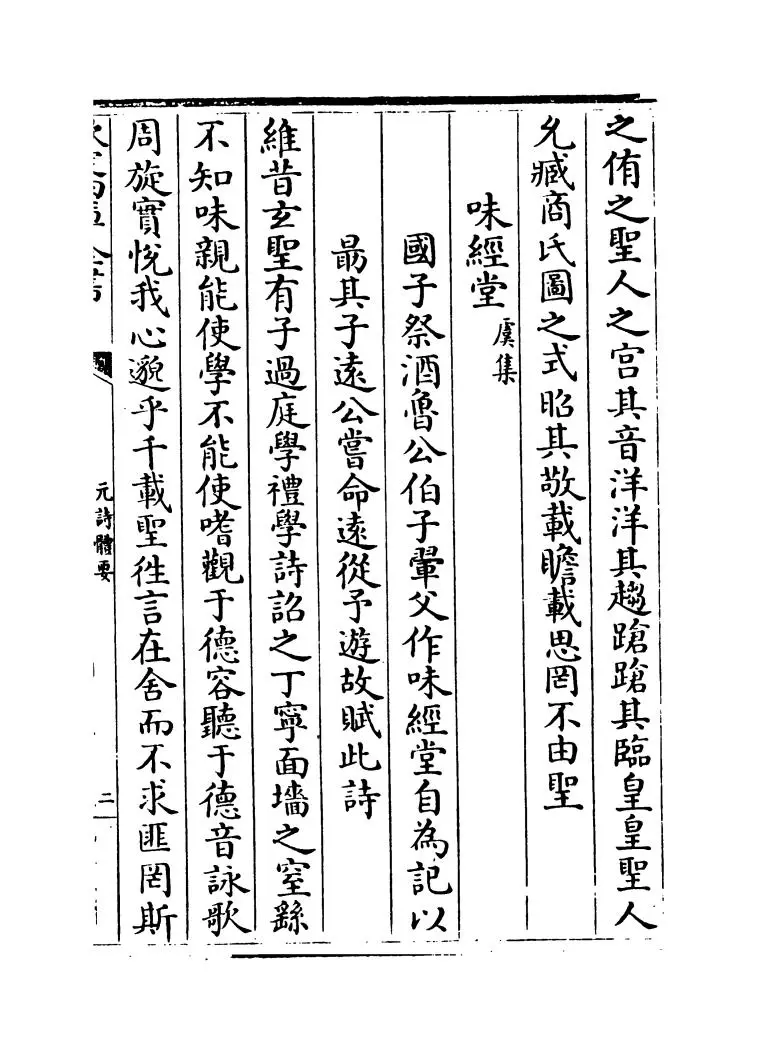 之侑之聖人之宫其音洋洋其趨蹌蹌其臨皇皇聖人
允臧商氏圖之式昭其敬載瞻載思罔不由聖
味經堂 虞集
國子祭酒魯公伯子翬父作味經堂自為記以
勗其子遠公嘗命遠從予遊故賦此詩
維昔玄聖有子過庭學禮學詩詔之丁寧面墻之窒繇
不知味親能使學不能使嗜觀于德容聽于德音詠歌
周旋實悦我心邈乎千載聖徃言在舍而不求匪罔斯
元詩體要
二